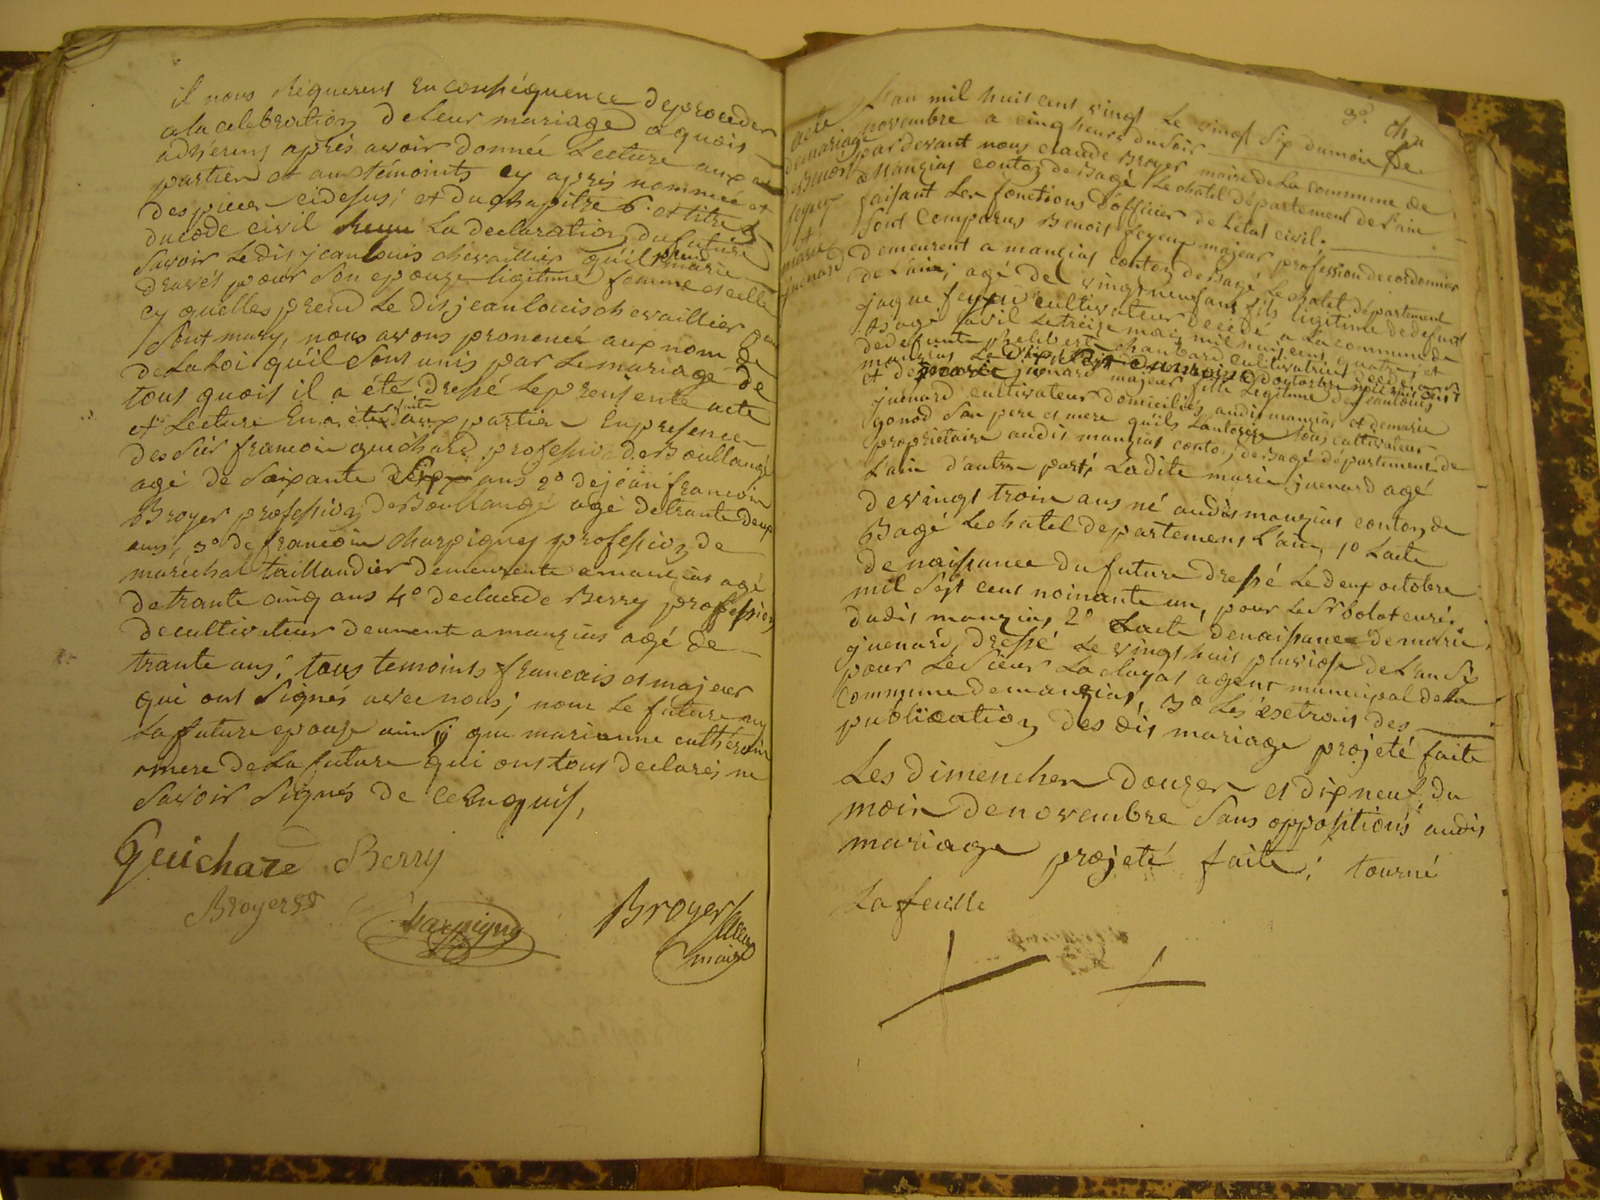 il nous requerens en conséquence de proceder
a la celebration de leur mariage a quois
adherens aprés avoir donneé Lecture aux
partier et aux témoints cy aprés nommé et
des pieces cidesus; et du chapitre 6 et titre
du code civil La declaration du future
savoir Ledis jean Louis chevaillier qu'il prend marie
pour son epouze legitime femme et celle
cy quelles prend Le dis jean louis chevaillier pour
sont mary, nous avons prononcé aux nom de
de La Loi quil sont unis par Le mariage de
tous quois il a été dressé Le presente acte
et Lecture En a été faite aux partier En presence
des Sir francois guichard profession de Boullangé
agé de soixante ans 2º de jean francois
Broyer profession de Boullangé agé de trante deux
ans, 3º de francois charpigny profession de
maréchal taillandier demeurente a manzias agé
de trante cinq ans 4º de claude Berry profession
de cultivateur demeurente a manzias agé de
trante ans; tous temoints francais et majeur
qui ont signés avec nous; nom Le future ny
La future epouze ainsy que marianne cathérine
mere de La future qui ons tous declarés ne
savoir signés de ce enquis,
Guichard Berry
Broyer
Charpigny
Broyer
maire
3º
acte
de mariage
de Benoit
feyeux
et
marie
juenard
L'an mil huit cent vingt Le vingt six du mois de
novembre a cinq heure du soir
pardevant nous claude Broyer maire de La commune de
manzias conton de Bagé Le chatel département de L'ain
faisant Les fonctions d'officier de L'etat civil.
sont Comparus Benois feyeux majeur profession de cordonnier
demeurent a manzias conton de Bagé Le chatel département
de L'ain; agé de vingt neuf ans fils ligitime de defunt
jaque feyeux cultivateur decedé a La commune de
Bagé Le treize mai mil huit cent quatre et
de defunte philiberte chanbard cultivatrice
manzias Le
et de marie juenard majeur fille Legitime de jean louis
juenard cultivateur domiciliés audis manzias et de marie
gonod son pere et mere quils L'autorize tous cultivateur
proprietaire audis manzias conton de Bagé département de
L'ain d'autre part, La dite marie juenard agé
de vingt trois ans né audis manzias conton de
Bagé Le chatel departement L'ain, 1º L'acte
de naissance du future dressé Le deux octobre
mil sept cent noinante un, pour Le Sr bolot curé
dudis manzias 2º L'acte de naissance de marie
juenard, dressé Le vingt huit pluviose de L'an six
pour Le sieur Laclayat agent municipal de La
Commune de manzias, 3º Les exetrais des
publication des dis mariage projeté faite
Les dimenches douzer et dix neuf du
mois de novembre Sans oppositions audis
mariage projeté faite; tourné
La feuille